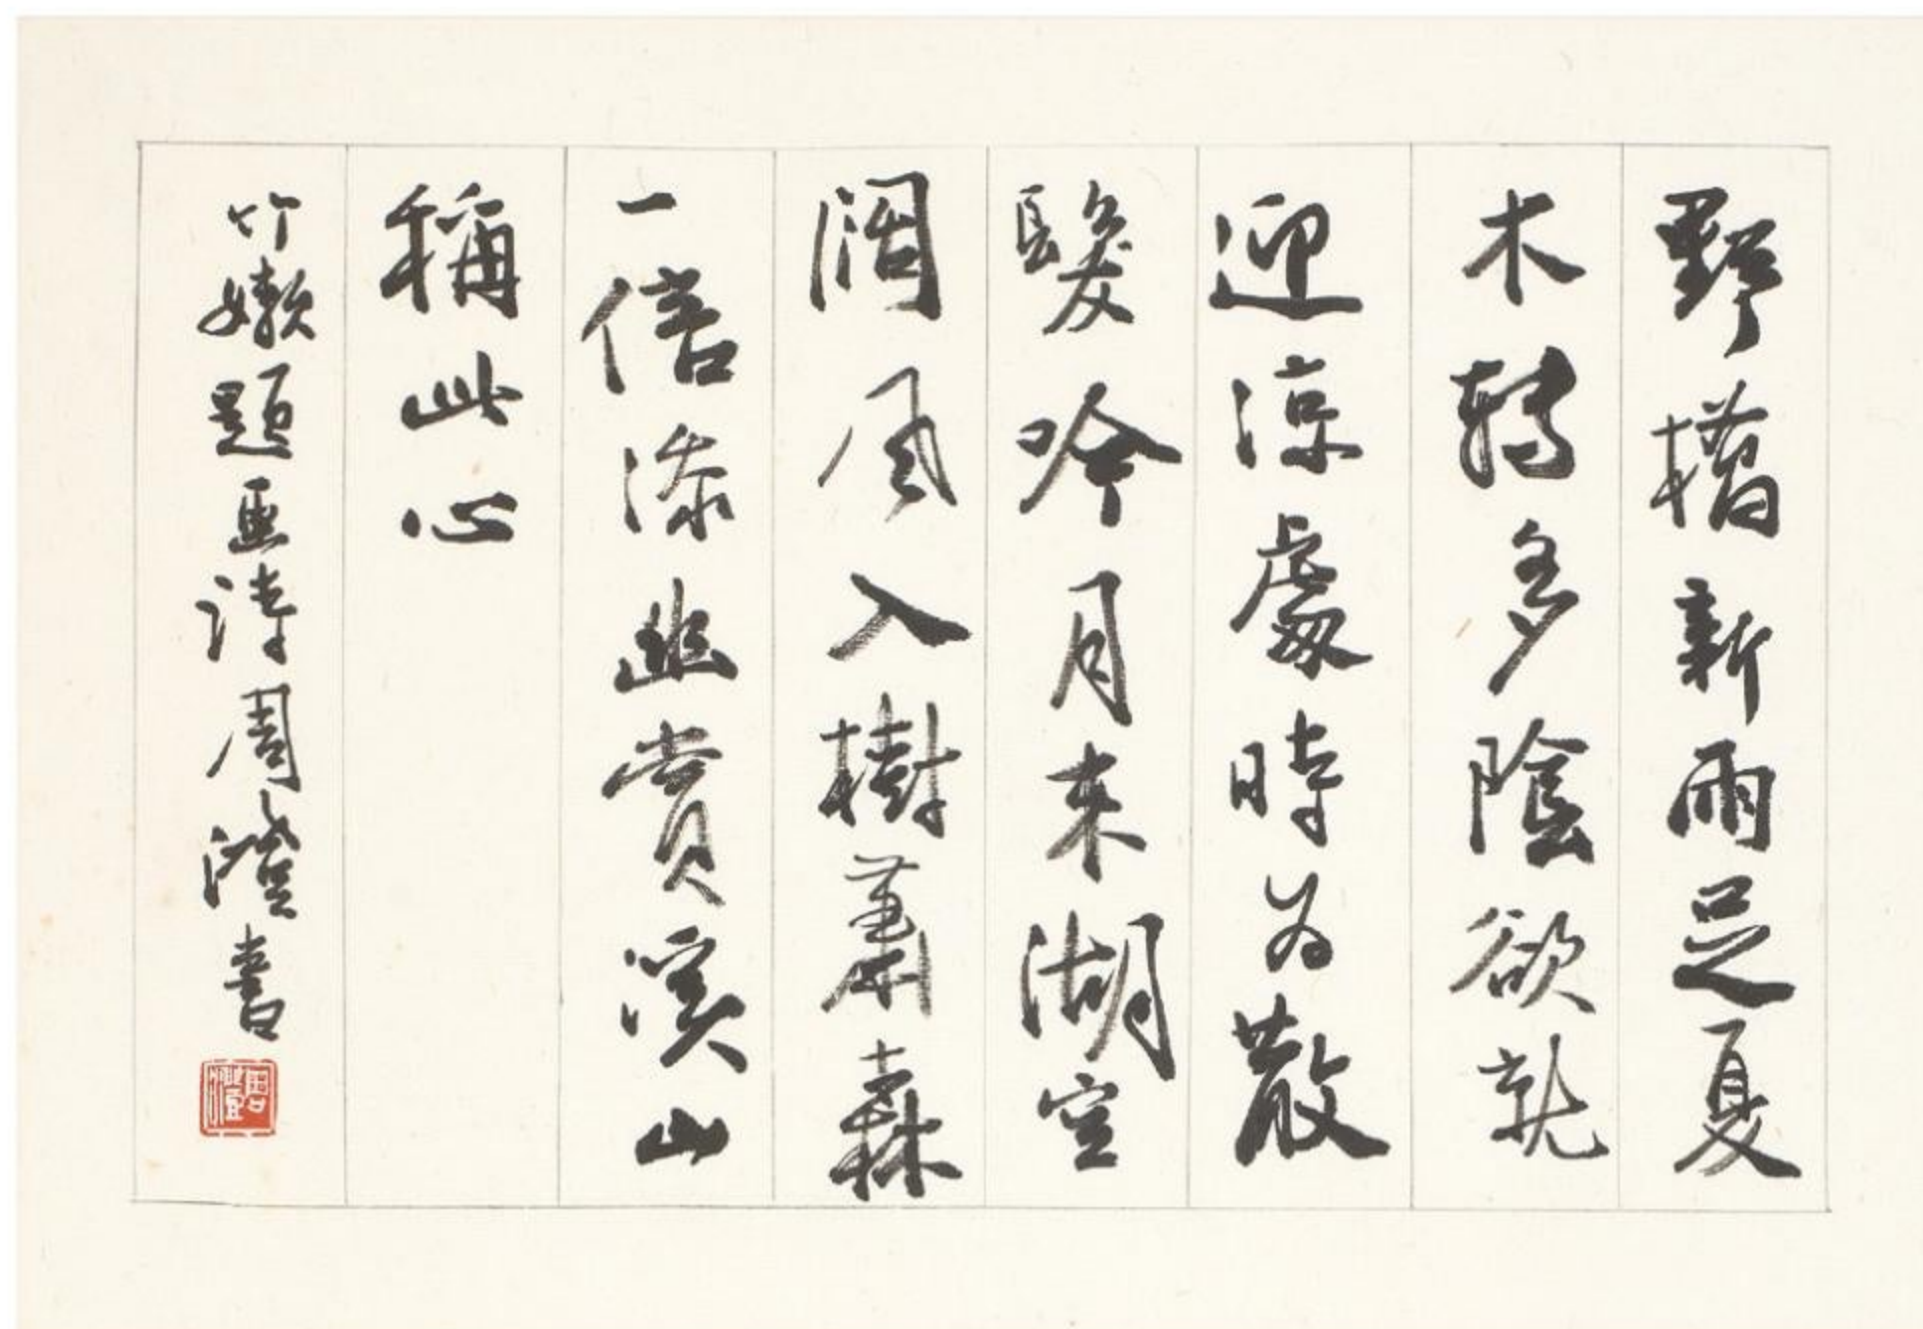 野橋新雨足夏
木轉多陰欲就
迎涼處時為散
髮吟月來湖空
闊風入樹蕭森
一倍添幽賞溪山
稱此心
竹嬾題画詩周澄書
周澄